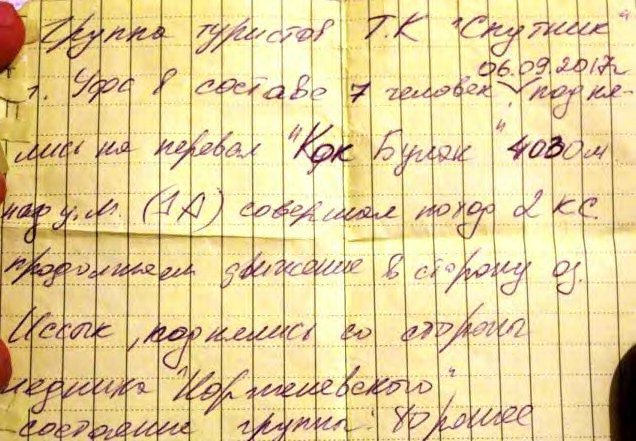 Группа туристов Т.К "Спутник"
06.09.2017г
г. Уфа в составе 7 человек, подня-
лись на перевал "Кок Булак" 4030м
над у.м. (1А) совершая поход 2 КС.
продолжаем движение в сторону оз.
Иссык, поднялись со стороны
ледника "Корженевского"
состояние группы: хорошее